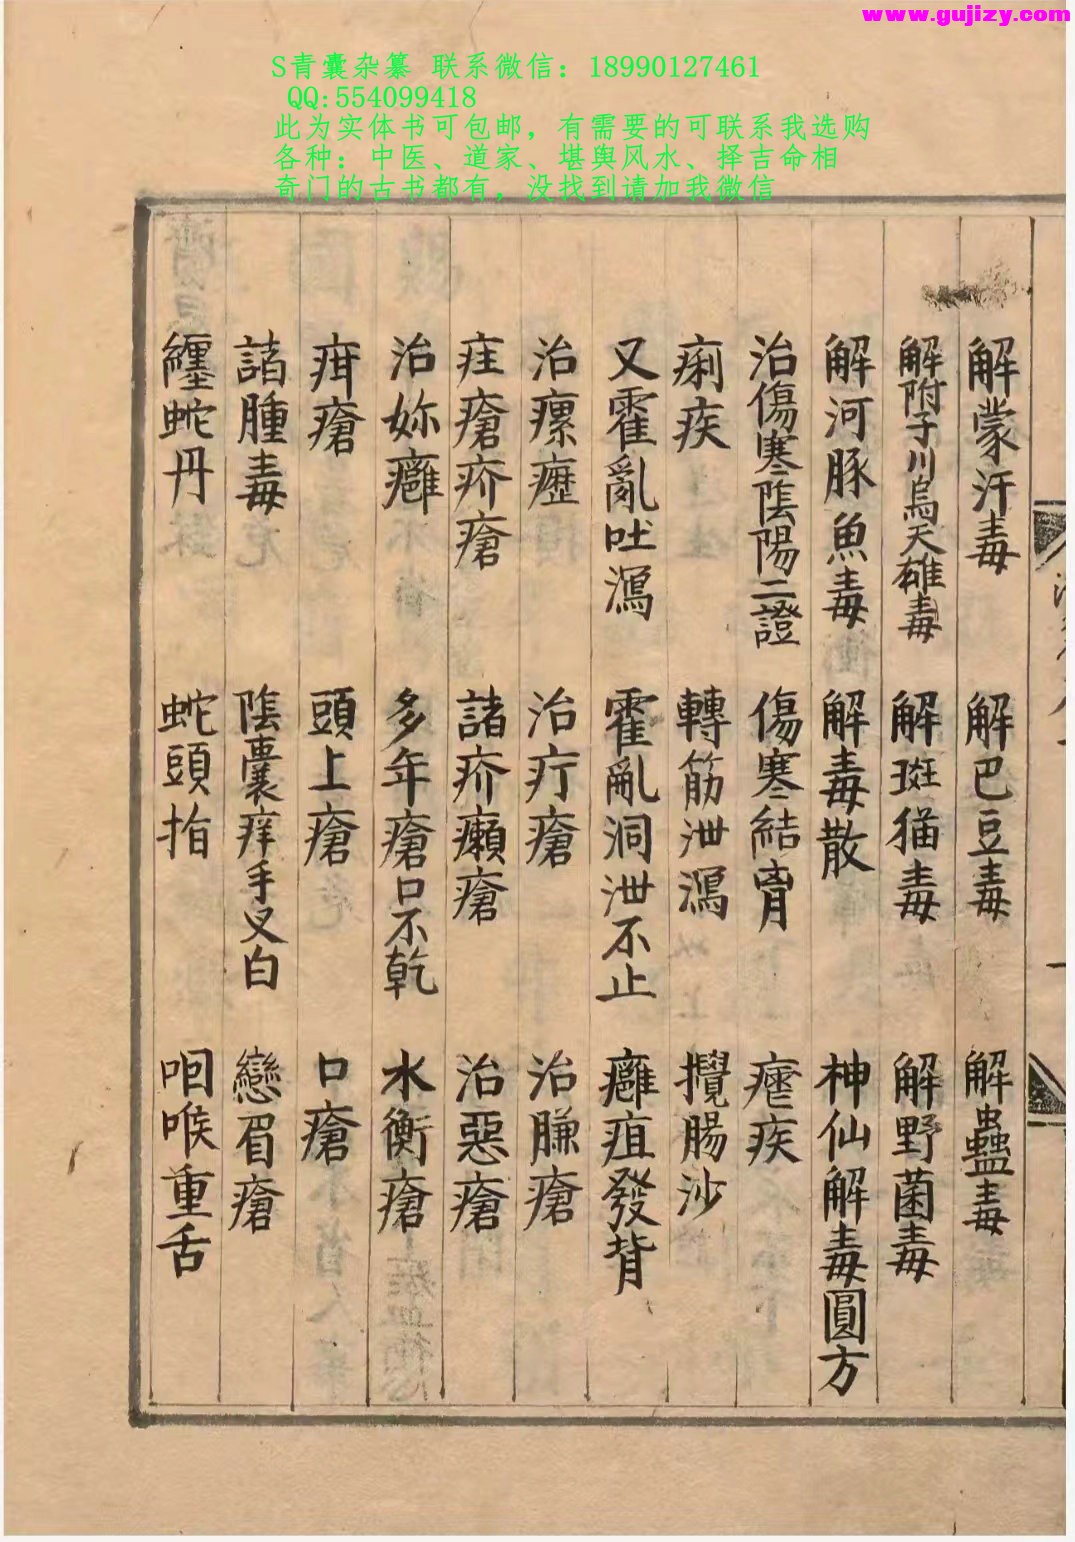 www.gujizy.com
S青囊杂纂 联系微信：18990127461
QQ:554099418
此为实体书可包邮，有需要的可联系我选购
各种：中医、道家、堪舆风水、择吉命相
奇门的古书都有，没找到请加我微信
解蒙汗毒 解巴豆毒 解蠱毒
解附子川烏天雄毒 解斑猫毒 解野菌毒
解河豚魚毒 解毒散 神仙解毒圓方
治傷寒陰陽二證 傷寒結胷 瘧疾
痢疾 轉筋泄瀉 攪腸沙
又霍亂吐瀉 霍亂洞泄不止 癰疽發背
治瘰癧 治疔瘡 治臁瘡
疰瘡疥瘡 諸疥癩瘡 治惡瘡
治妳癰 多年瘡口不乾 水衡瘡
疳瘡 頭上瘡 口瘡
諸腫毒 陰囊痒手叉白 戀眉瘡
纏蛇丹 蛇頭指 咽喉重舌